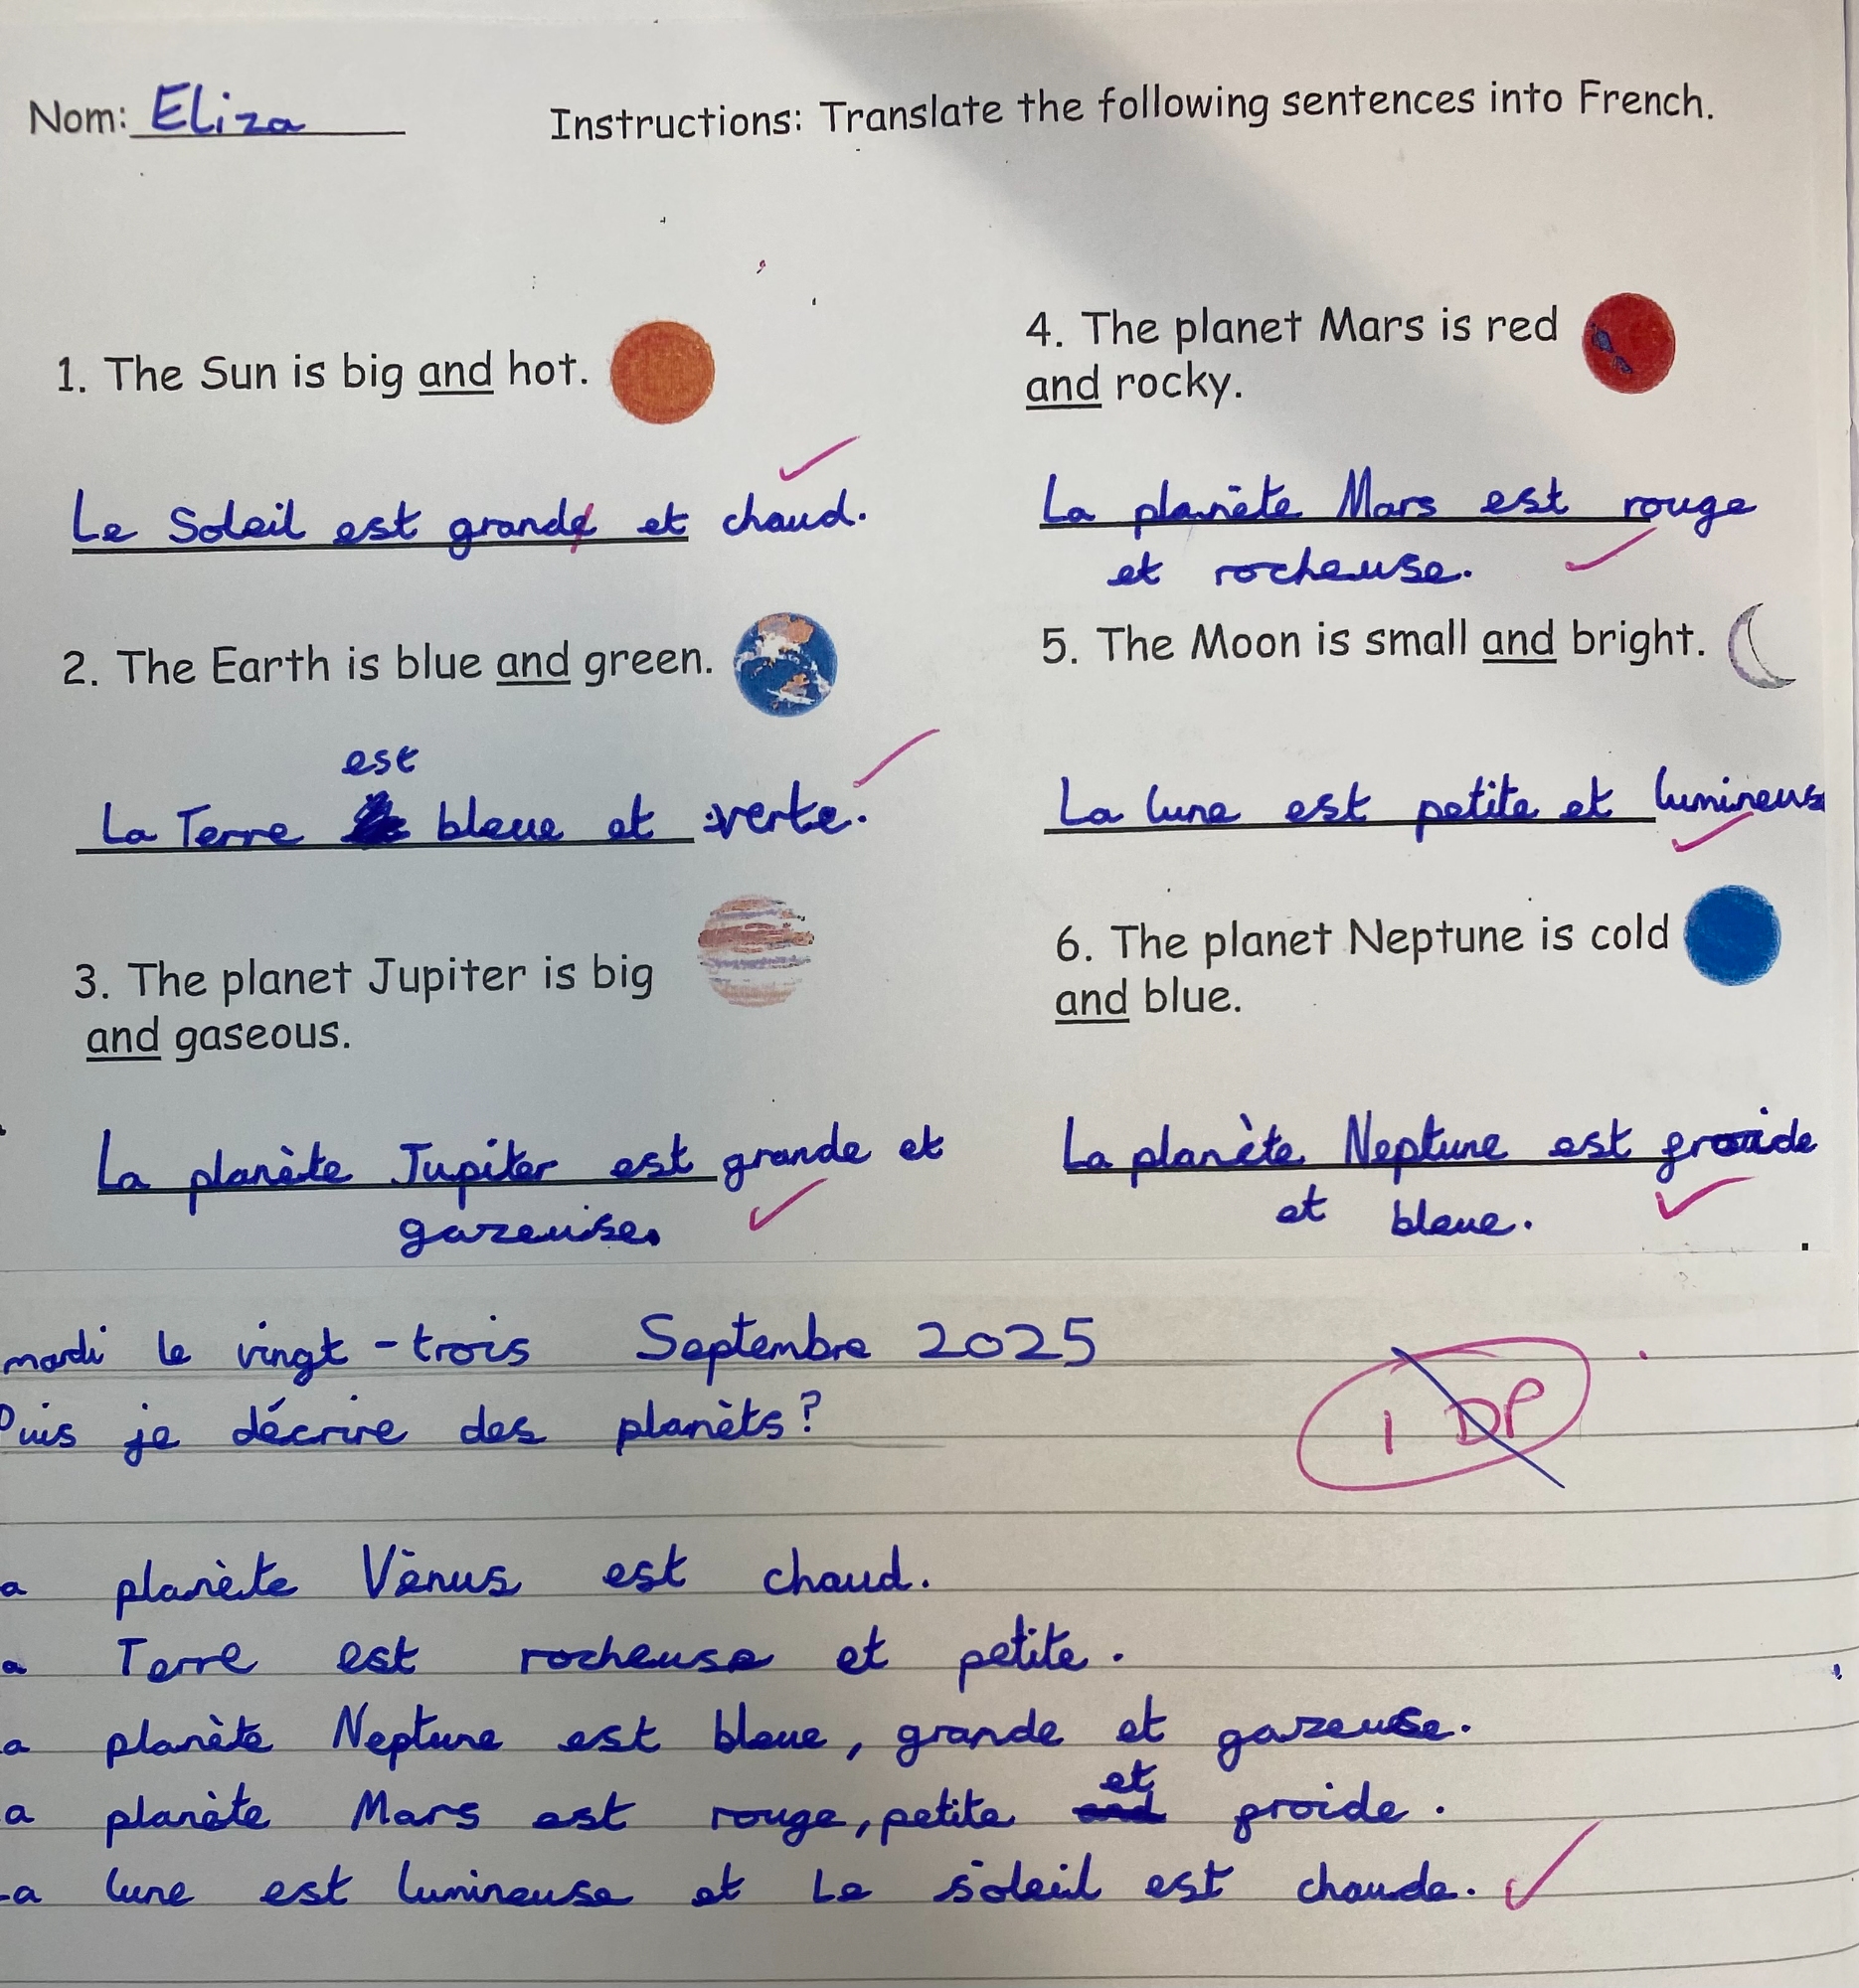 Nom: Eliza
Instructions: Translate the following sentences into French.
1. The Sun is big and hot.
Le Soleil est grande et chaud.
2. The Earth is blue and green.
est
La Terre bleue et verte.
3. The planet Jupiter is big
and gaseous.
La planète Jupiter est grande et
gazeuise.
4. The planet Mars is red
and rocky.
La planète Mars est rouge
et rocheuse.
5. The Moon is small and bright.
La lune est petite et lumineus
6. The planet Neptune is cold
and blue.
La planète Neptune est groide
et bleue.
mardi le vingt-trois Septembre 2025
Puis je décrire des planèts?
1 DP
a planète Vènus est chaud.
a Terre est rocheuse et petite.
a planète Neptune est bleue, grande et gazeuse.
et
a planète Mars est rouge, petite and groide.
La lune est lumineuse et Le soleil est chaude.